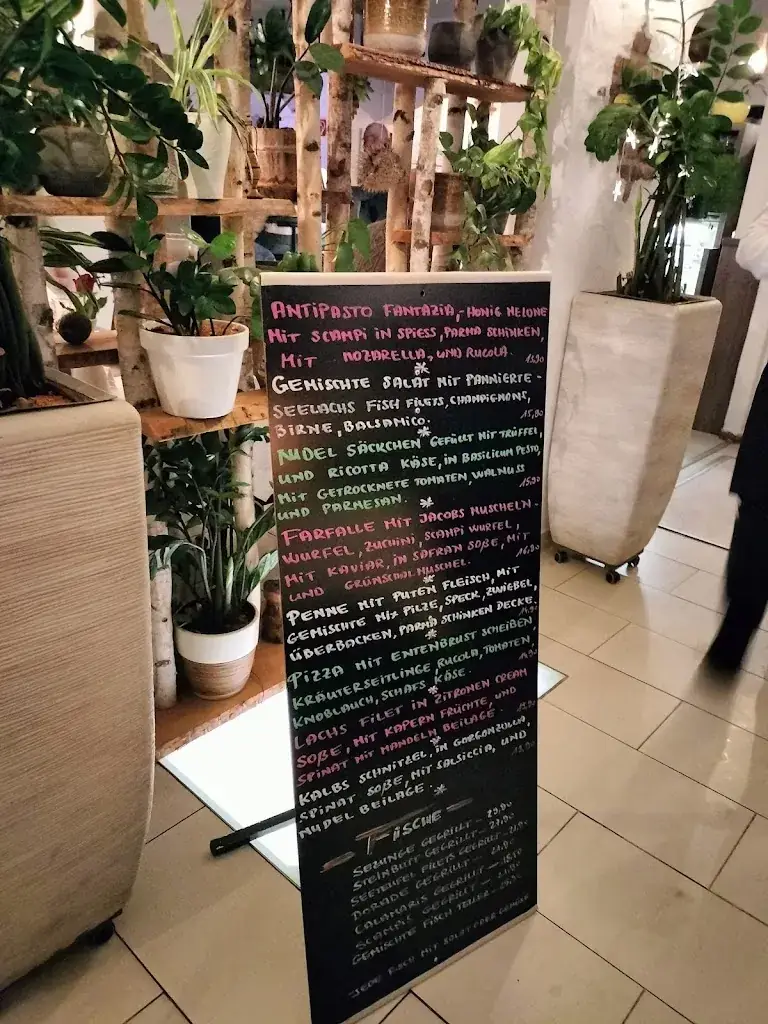 ANTIPASTO FANTAZIA,-HONIG MELONE
MIT SCAMPI IN SPIESS, PARMA SCHINKEN,
MIT MOZARELLA, UND RUCOLA. 15,90
*
GEMISCHTE SALAT MIT PANNIERTE-
SEELACHS FISH FILETS, CHAMPIGNONS,
BIRNE, BALSAMICO. 15,90
*
NUDEL SÄCKCHEN GEFÜLLT MIT TRÜFFEL,
UND RICOTTA KÄSE, IN BASILICUM PESTO,
MIT GETROCKNETE TOMATEN, WALNUSS
UND PARMESAN. 15,90
*
FARFALLE MIT JACOBS MUSCHEL'N-
WURFEL, ZUCHINI, SCAMPI WURFEL,
MIT KAVIAR, IN SAFRAN SOßE, MIT
UND GRÜNSCHAL MUSCHEL. 16,90
*
PENNE MIT PUTEN FLEISCH, MIT
GEMISCHTE MIX PILZE, SPECK, ZWIEBEL,
ÜBERBACKEN, PARMA SCHINKEN DECKE. 14,90
*
PIZZA MIT ENTENBRUST SCHEIBEN,
KRÄUTERSEITLINGE, RUCOLA, TOMATEN,
KNOBLAUCH, SCHAFS KÄSE. 14,90
*
LACHS FILET IN ZITRONEN CREAM
SOßE, MIT KAPERN FRÜCHTE, UND
SPINAT MIT MANDELN BEILAGE-
*
KALBS SCHNITZEL, IN GORGONZULLA,
SPINAT SOßE, MIT SALSICCIA, UND
NUDEL BEILAGE. *
- FISCHE -
SEZUNGE GEGRILLT - 29,90
STEINBUTT GEGRILLT -
SEETEUFEL FILETS GEGRILLT -
DORADE GEGRILLT -
CALAMARIS GEGRILLT -
SCAMPIE GEGRILLT -
GEMISCHTE FISCH TELLER -
JEDE FISCH MIT SALAT ODER GEMÜSE